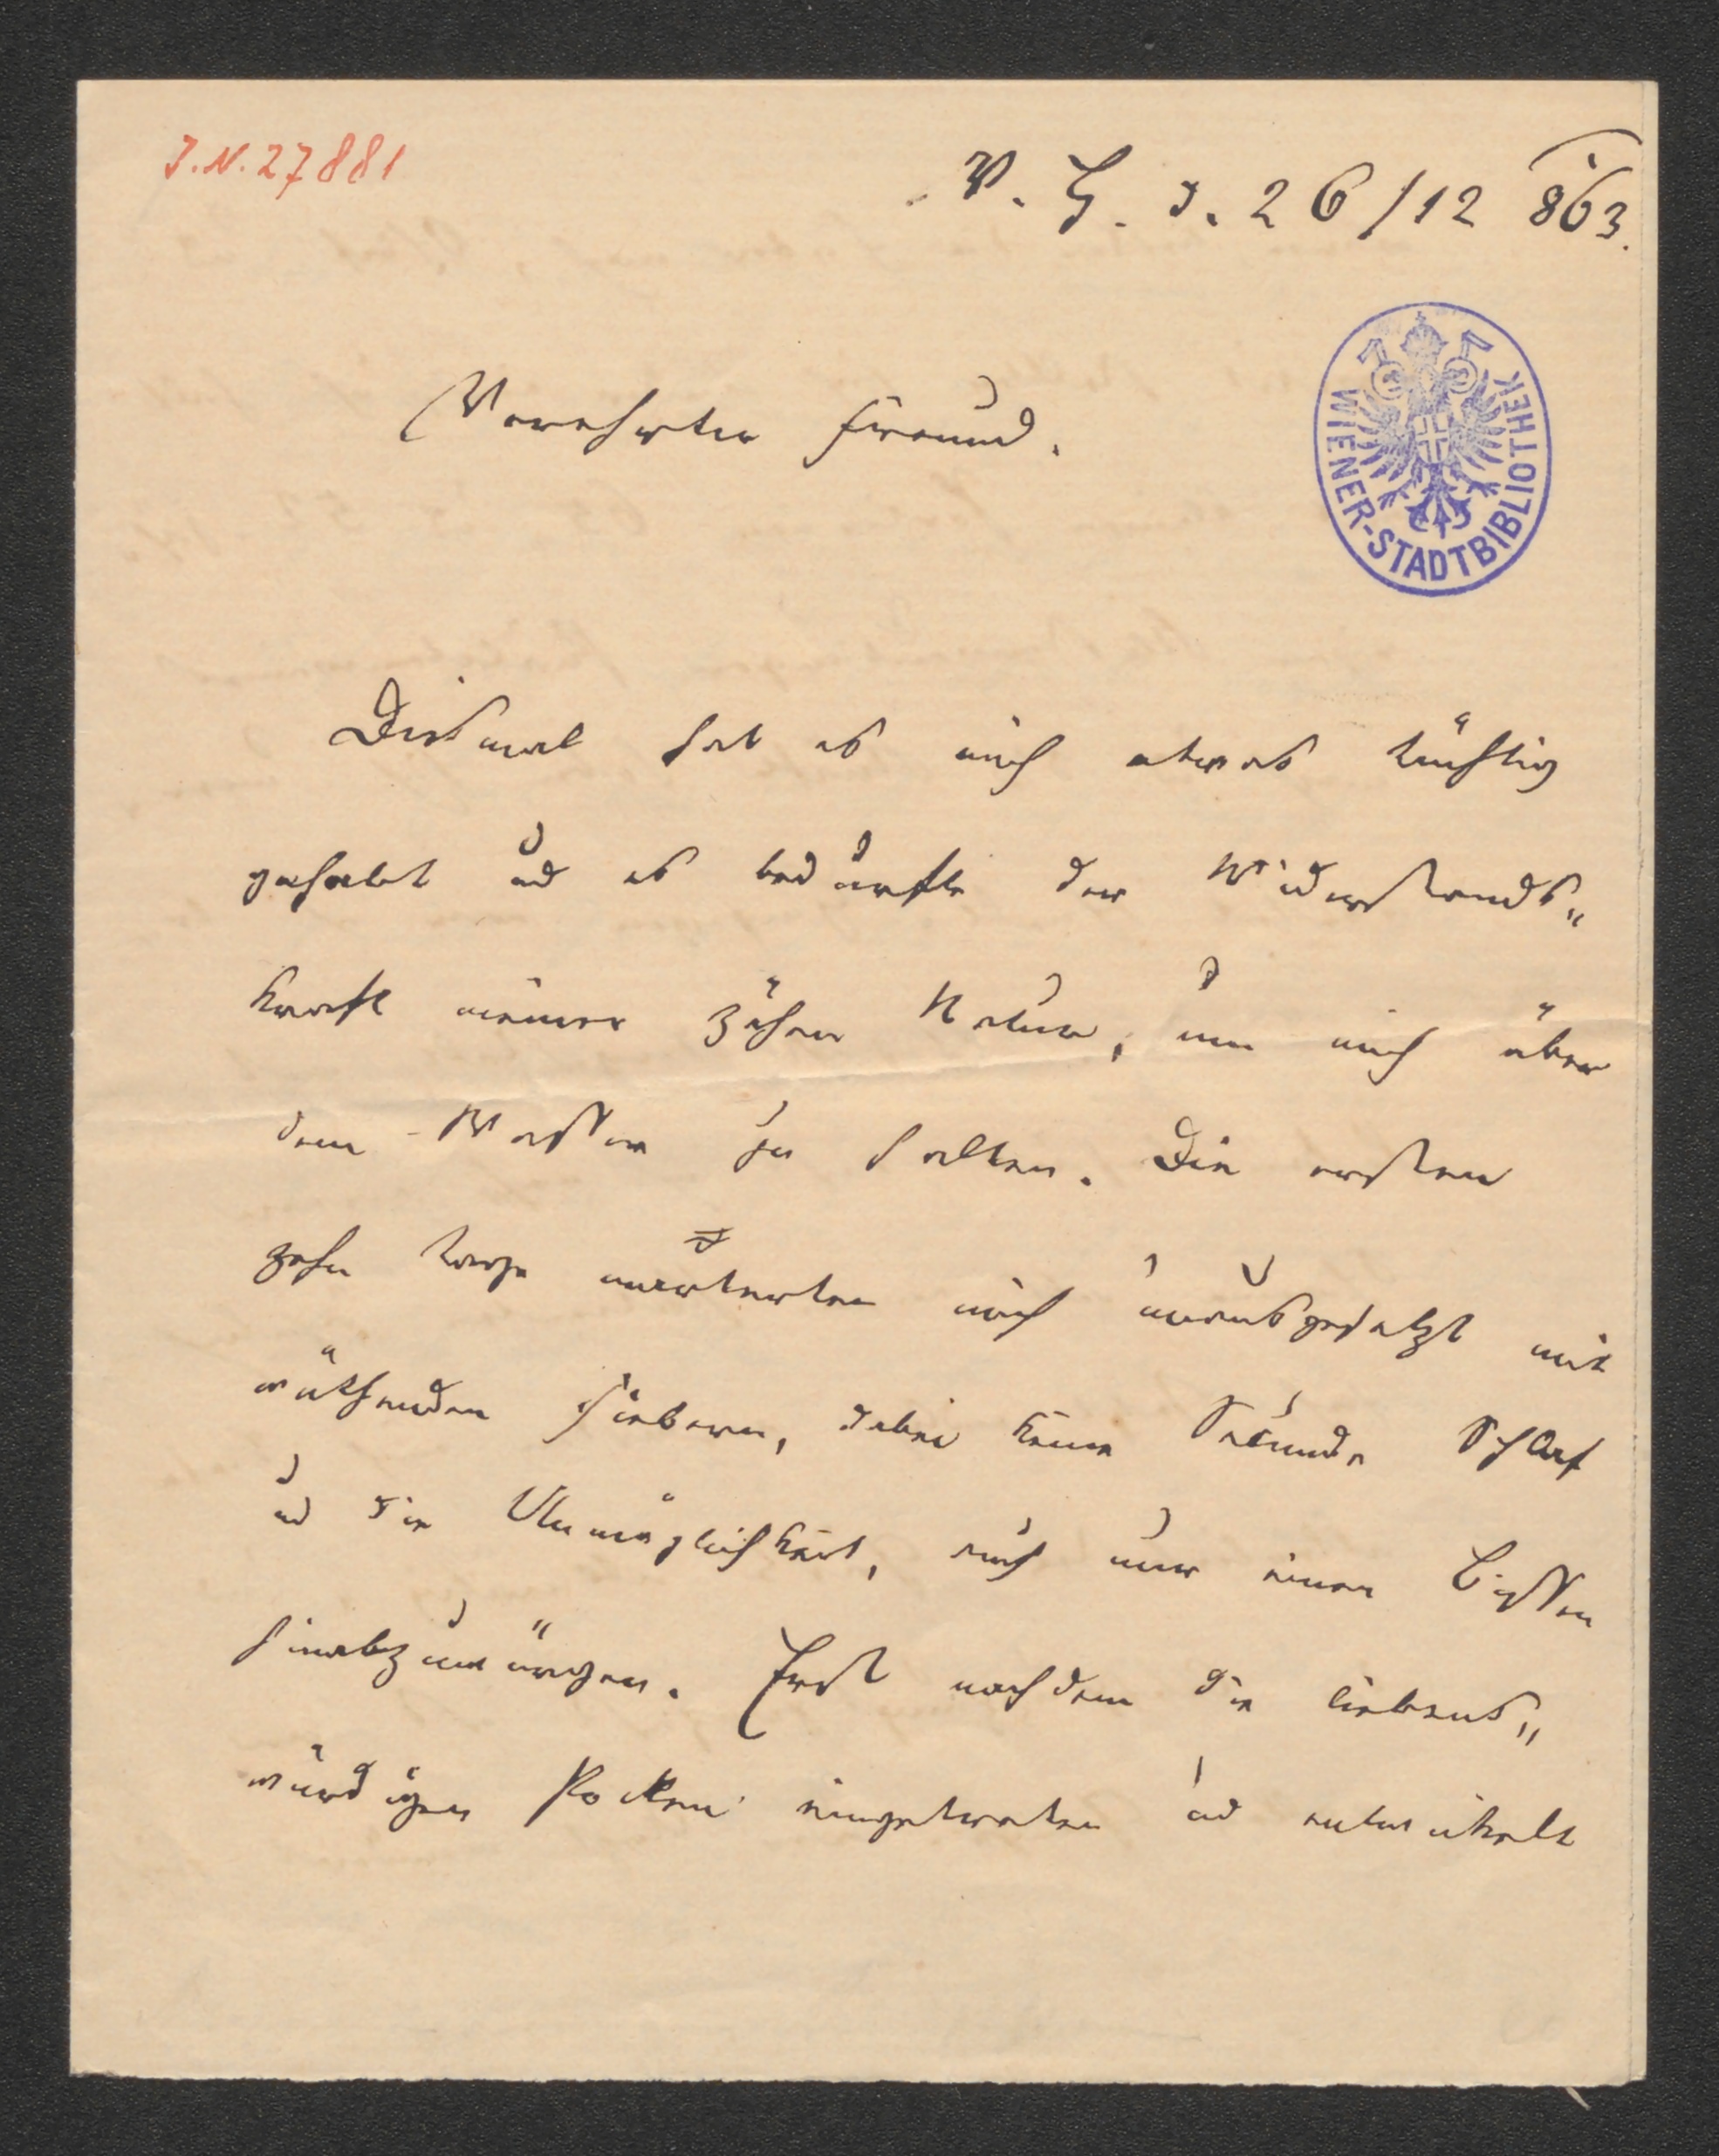 J.N. 27881
V. H. d. 26/12 863.
WIENER-STADTBIBLIOTHEK
Verehrter Freund.
Diesmal hat es mich etwas tüchtig
gehabt und es bedürfte der Widerstands„
kraft meiner zähen Natur, um mich über
dem Wasser zu halten. Die ersten
zehn Tage marterten mich unausgesetzt mit
wüthenden Fiebern, dabei keine Secunde Schlaf
und die Unmöglichkeit, auch nur einen Bissen
hinabzuwürgen. Erst nachdem die liebens„
würdigen Pocken eingetreten und entwickelt